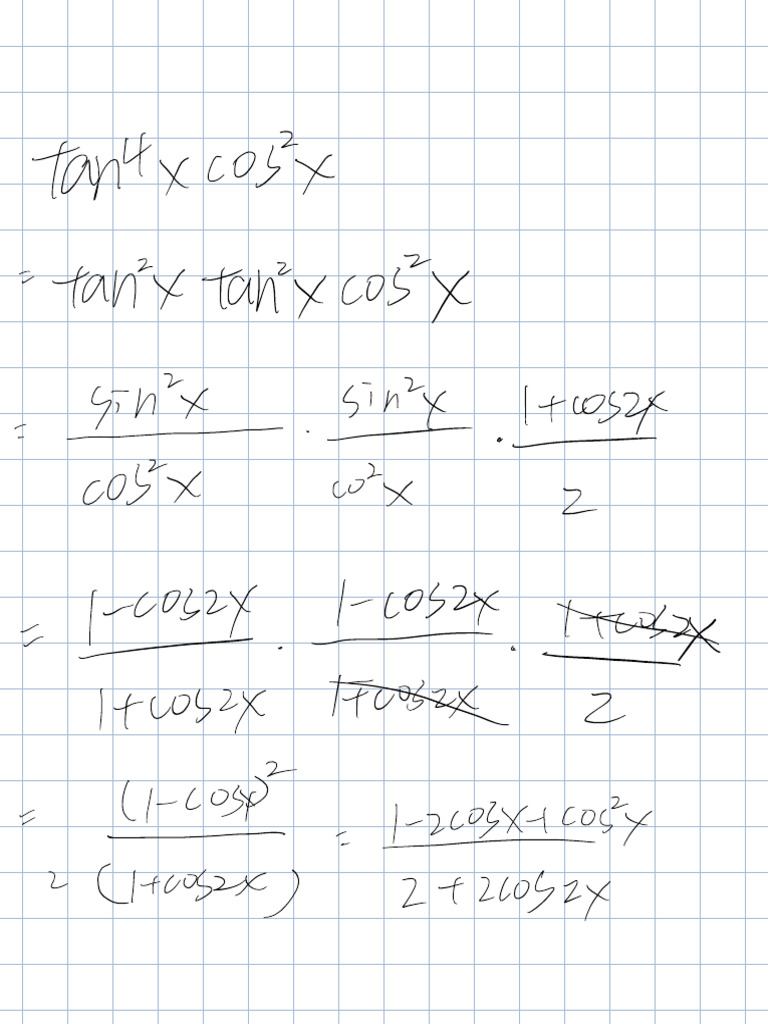 tan⁴x cos²x
= tan²x tan²x cos²x
= sin²x/cos²x · sin²x/co²x · 1+cos2x/2
= 1-cos2x/1+cos2x · 1-cos2x/1+cos2x · 1+cos2x/2
= (1-cosx)²/2(1+cos2x) = 1-2cosx+cos²x/2+2cos2x